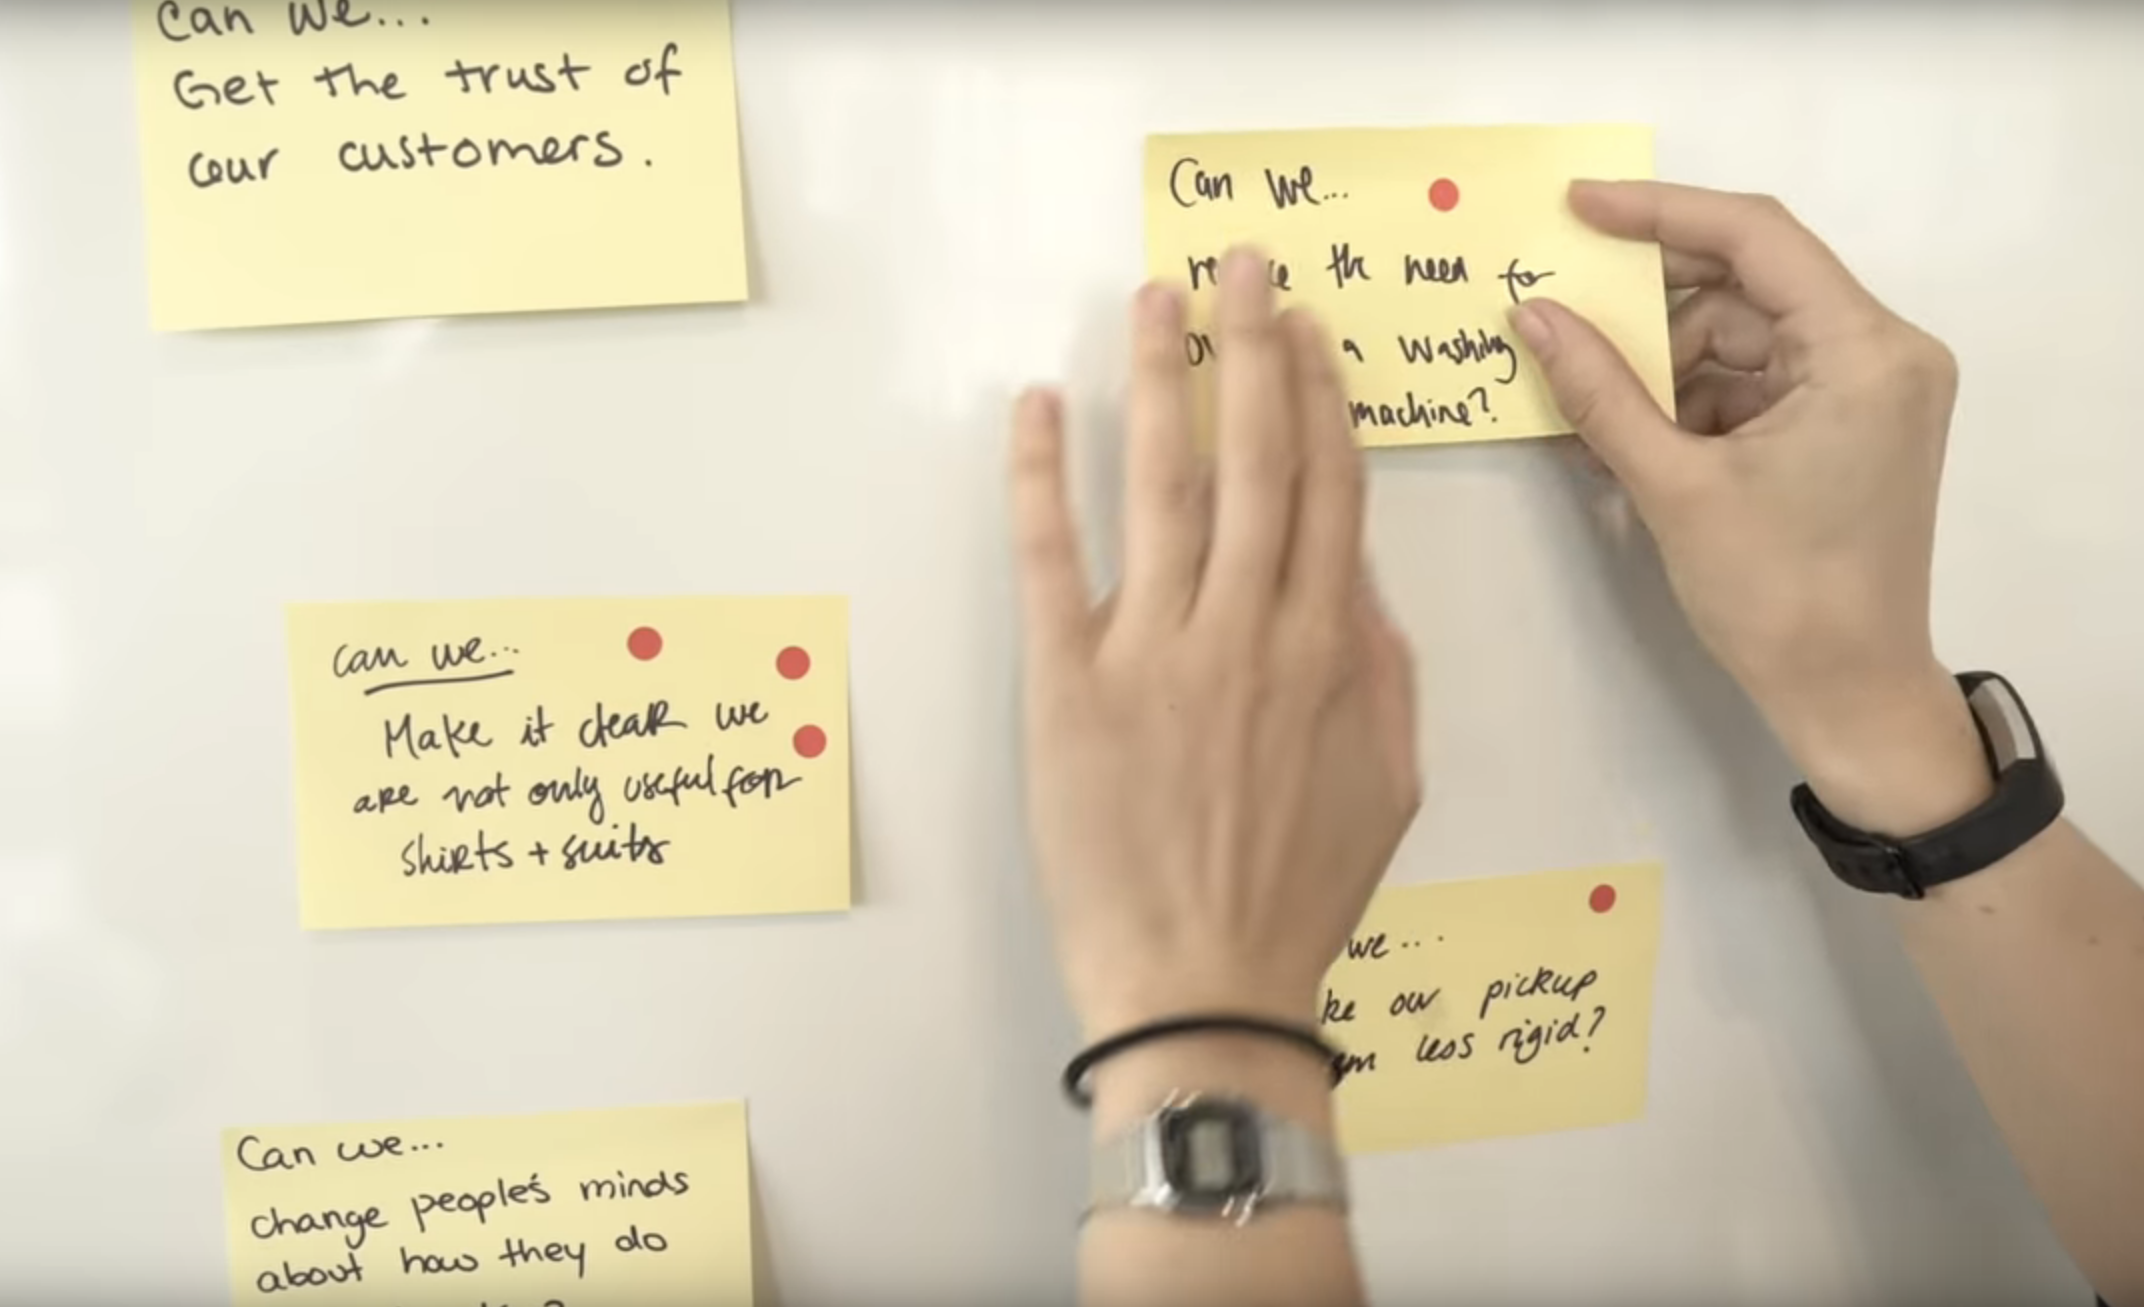 Can we...
Get the trust of
our customers.
Can we...
the need for
a washing
machine?
can we...
Make it clear we
are not only useful for
shirts + suits
we...
our pickup
less rigid?
Can we...
change people's minds
about how they do